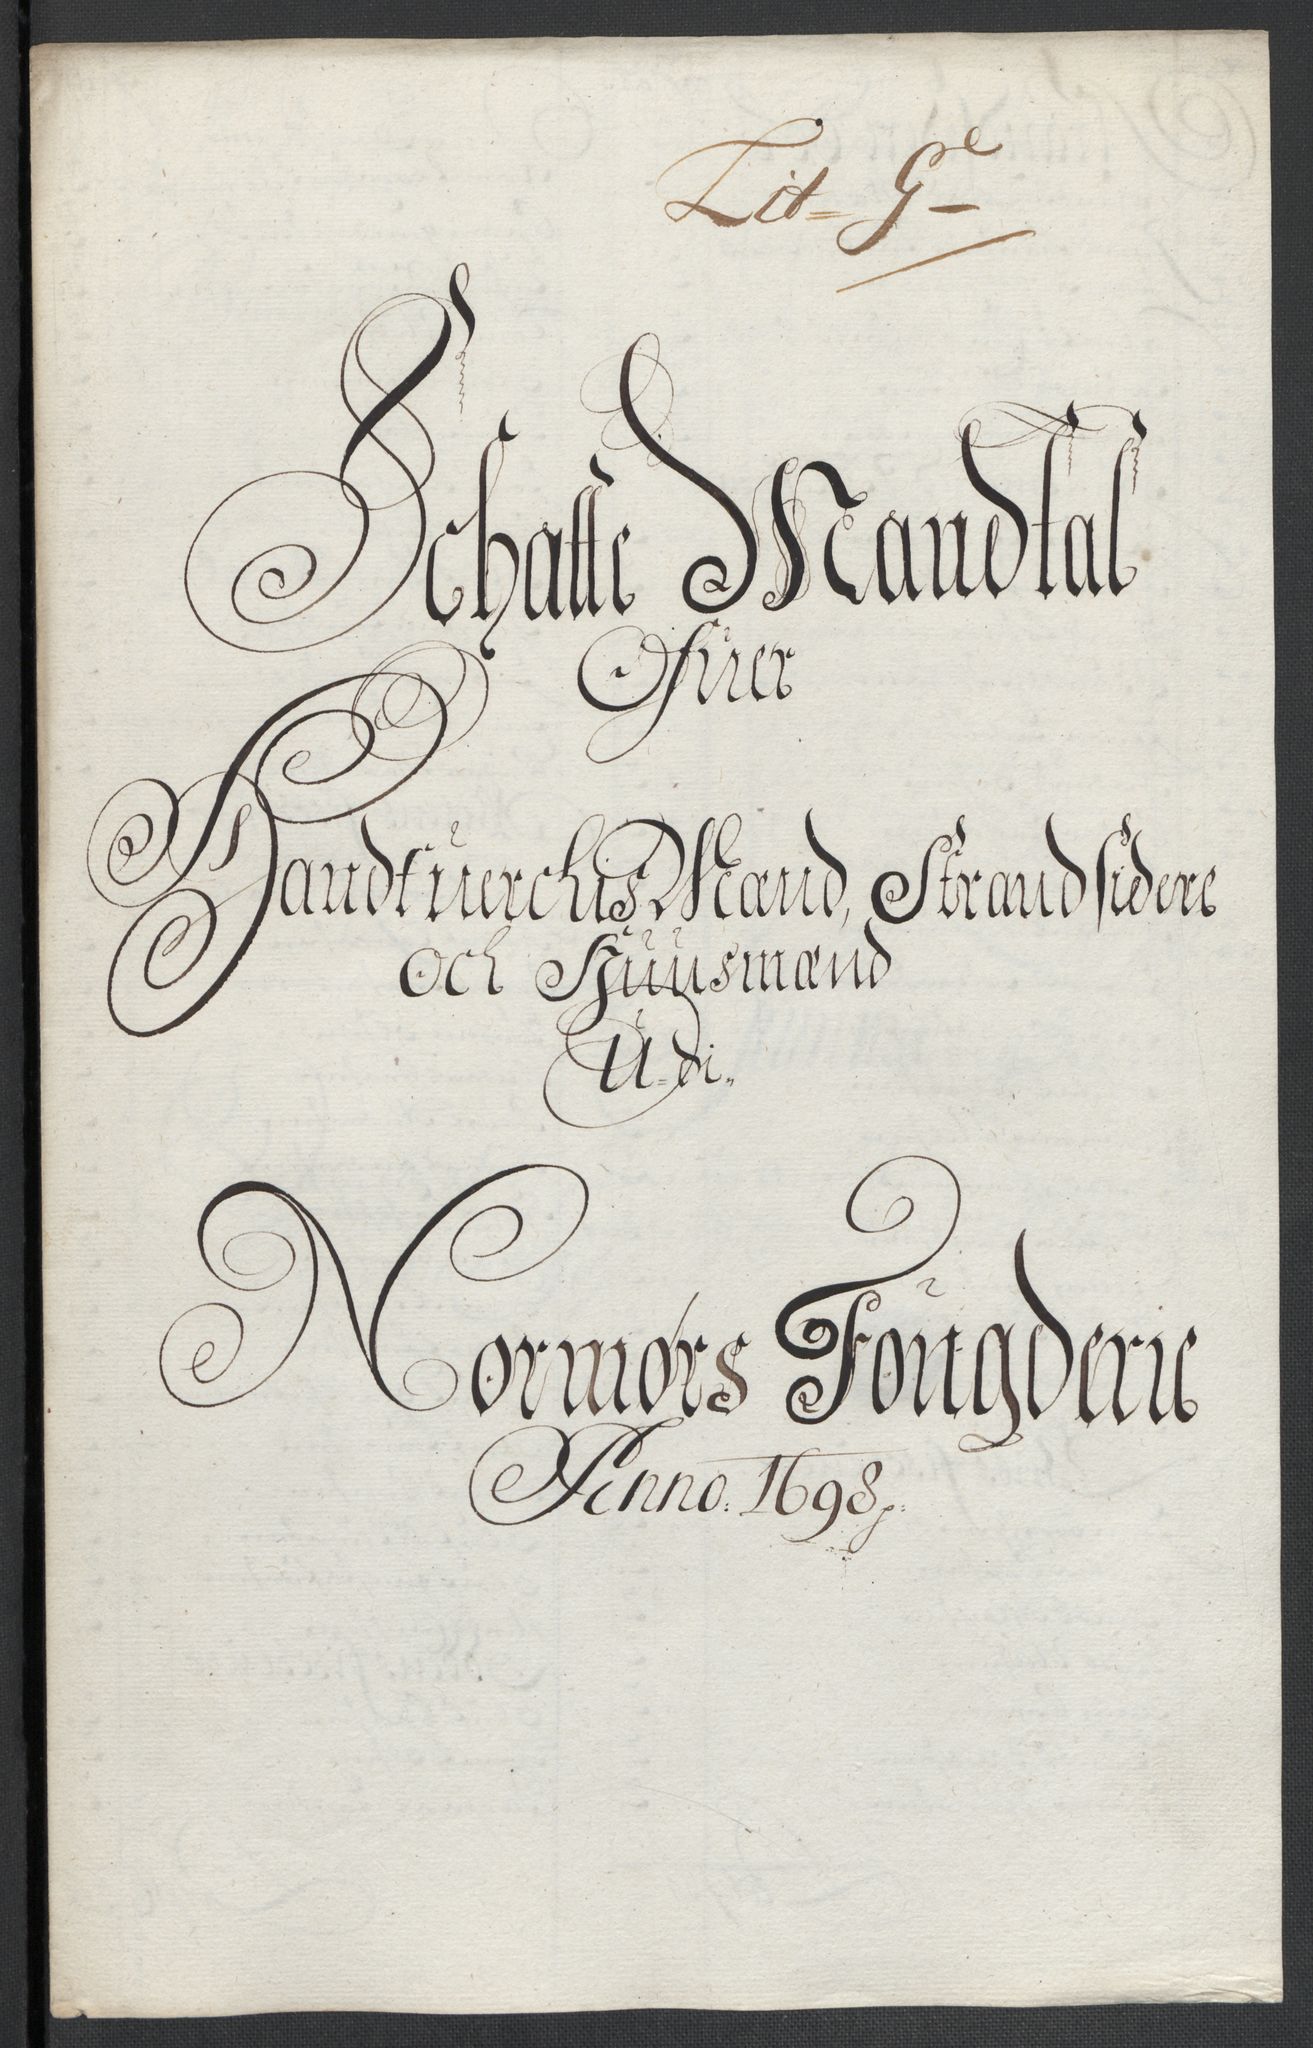 Lit= G
Schatte Mandtal
Ofuer
Handtuerchis Mænd, Strandsidere
och Huusmænd
U=di.
Normørs Fougderie
Anno. 1698